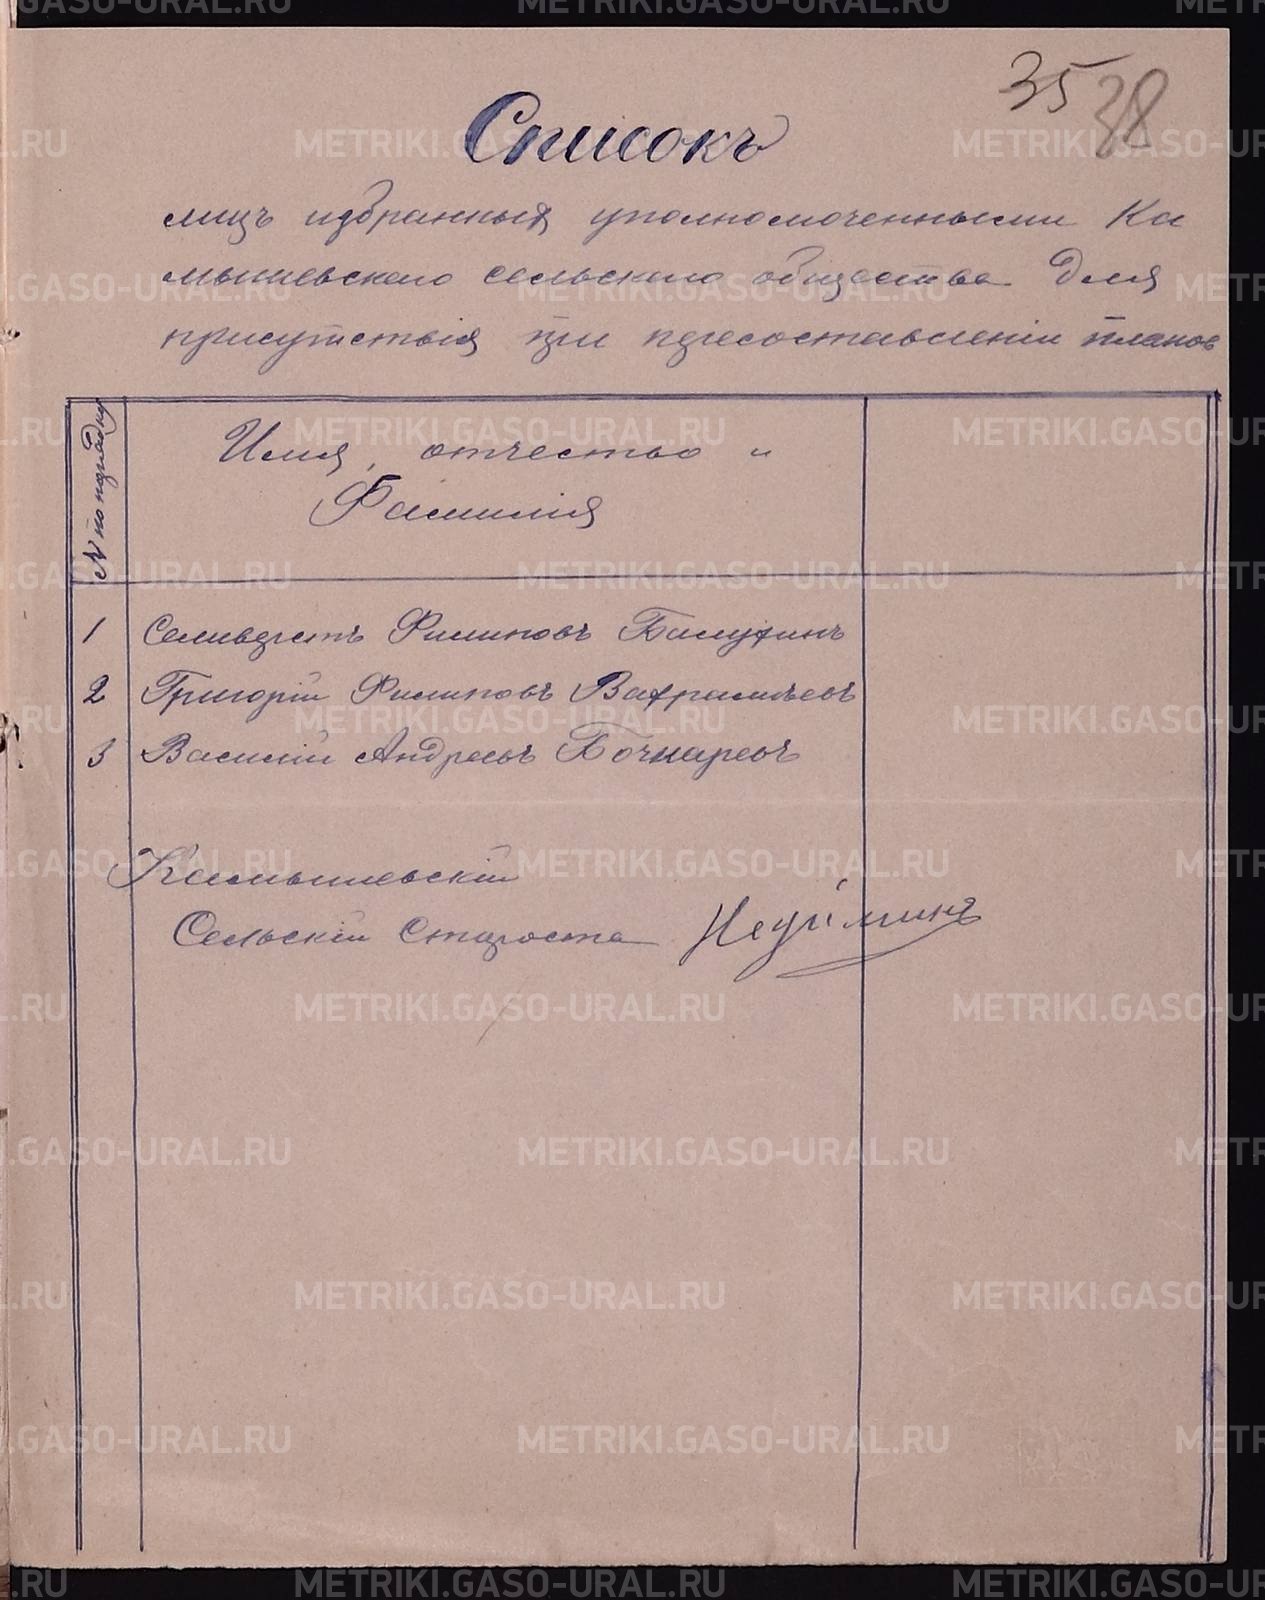 35 38
Списокъ
лицъ избранныя уполномоченными Ка
мышевскаго сельскаго общества для
присутствія при пересоставленіи планов
N по порядку
Имя, отчество и
Фамилія
1 Селиверстъ Филиповъ
2 Григорій Филиповъ Вафрамѣевъ
3 Василій Андреевъ Бочкаревъ
Камышевскій
Сельскій Староста
METRIKI.GASO-URAL.RU